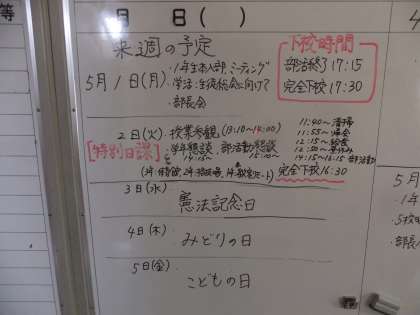 月 日( )
来週の予定
下校時間
部活終了 17:15
完全下校 17:30
5月1日(月)
・1年生本入部ミーティング
・学活:生徒総会に向けて
・部長会
2日(火)
・授業参観(13:10~14:00)
[特別日課]
・学年懇談 部活動懇談
14:15~ 15:20~
11:40~清掃
11:55~帰会
12:15~給食
12:50~昼休み
14:15~16:15 部活動
完全下校16:30
3日(水)
憲法記念日
4日(木)
みどりの日
5日(金)
こどもの日
5月
・1年
・部長